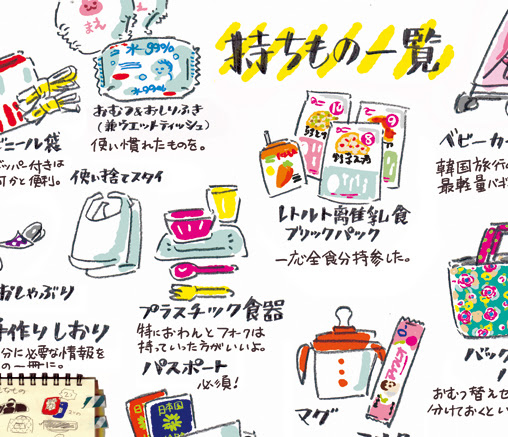 持ちもの一覧
まえ
水99%
水99%
おむつ&おしりふき
(兼ウエットティッシュ)
使い慣れたものを。
ニール袋
ッパー付きは
何かと便利。
使い捨てスタイ
10
9
8
レトルト離乳食
ブリックパック
一応全食分持参した。
ベビーカー
韓国旅行の
最軽量バギ
おしゃぶり
プラスチック食器
特におわんとフォークは
持っていた方がいいよ。
手作りしおり
分に必要な情報を
の一冊に。
パスポート
必須!
日本国
日本国
マグ
バッグ
おむつ替えセ
分けておくとい